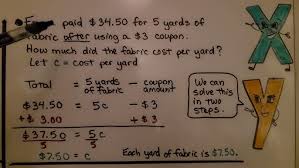 paid $34.50 for 5 yards of
fabric after using a $3 coupon.
How much did the fabric cost per yard?
Let c = cost per yard
Total = 5 yards of fabric - coupon amount
$34.50 = 5c - $3
+$ 3.00 + $3
$37.50 = 5c
5 5
$7.50 = c Each yard of fabric is $7.50.
We can
solve this
in two
steps.
X
Y